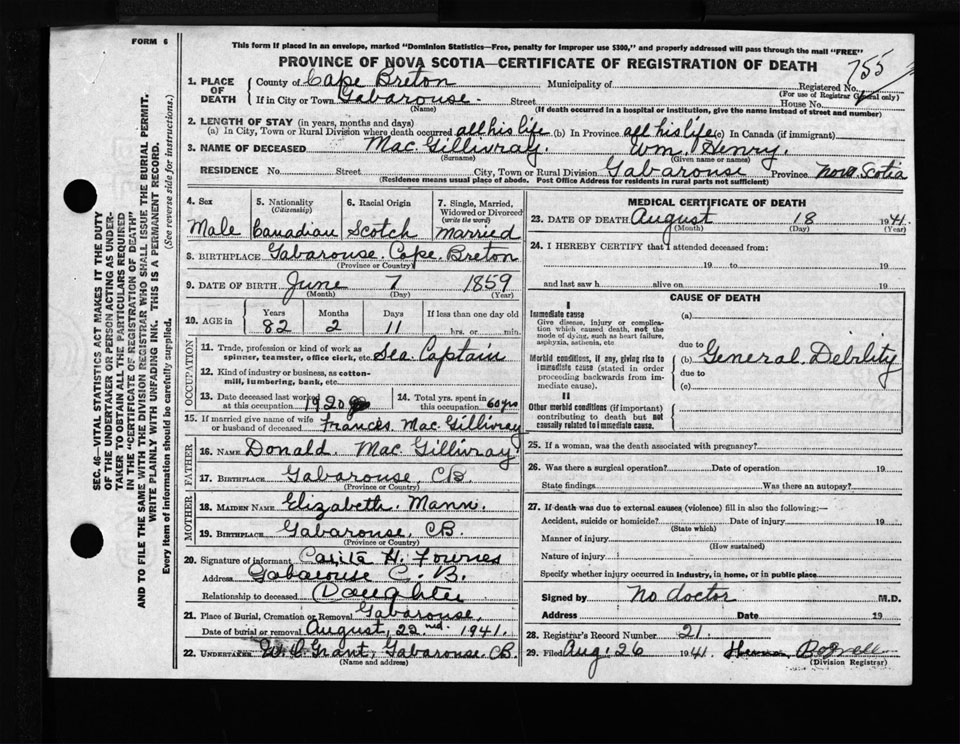 FORM 6
This form if placed in an envelope, marked "Dominion Statistics—Free, penalty for improper use $300," and properly addressed will pass through the mail "FREE"
PROVINCE OF NOVA SCOTIA—CERTIFICATE OF REGISTRATION OF DEATH
755
SEC. 46—VITAL STATISTICS ACT MAKES IT THE DUTY
OF THE UNDERTAKER OR PERSON ACTING AS UNDER-
TAKER TO OBTAIN ALL THE PARTICULARS REQUIRED
IN THE "CERTIFICATE OF REGISTRATION OF DEATH"
AND TO FILE THE SAME WITH THE DIVISION REGISTRAR WHO SHALL ISSUE THE BURIAL PERMIT.
WRITE PLAINLY WITH UNFADING INK. THIS IS A PERMANENT RECORD.
Every item of information should be carefully supplied. (See reverse side for instructions.)
1. PLACE OF DEATH
County of Cape Breton Municipality of Registered No.
(For use of Registrar General only)
If in City or Town Gabarouse. Street House No.
(Name) (If death occurred in a hospital or institution, give the name instead of street and number)
2. LENGTH OF STAY (in years, months and days)
(a) In City, Town or Rural Division where death occurred all his life (b) In Province all his life (c) In Canada (if immigrant)
3. NAME OF DECEASED Mac Gillivray. Wm. Henry.
(Surname) (Given name or names)
RESIDENCE No. Street City, Town or Rural Division Gabarouse Province Nova Scotia
(Residence means usual place of abode. Post Office Address for residents in rural parts not sufficient)
4. Sex
Male
5. Nationality
(Citizenship)
Canadian
6. Racial Origin
Scotch
7. Single, Married,
Widowed or Divorced
(write the word)
Married
8. BIRTHPLACE Gabarouse. Cape. Breton
(Province or Country)
9. DATE OF BIRTH June 7 1859
(Month) (Day) (Year)
10. AGE in Years Months Days If less than one day old
82 2 11 hrs. or min.
OCCUPATION
11. Trade, profession or kind of work as
spinner, teamster, office clerk, etc. Sea. Captain
12. Kind of industry or business, as cotton-
mill, lumbering, bank, etc.
13. Date deceased last worked
at this occupation 1920
14. Total yrs. spent in
this occupation 60 yrs
15. If married give name of wife
or husband of deceased Frances. Mac. Gillivray
FATHER
16. NAME Donald. Mac Gillivray.
17. BIRTHPLACE Gabarouse, C.B.
(Province or Country)
MOTHER
18. MAIDEN NAME Elizabeth. Mann.
19. BIRTHPLACE Gabarouse, C.B.
(Province or Country)
20. Signature of informant H. Fournes
Address Gabarouse C. B.
Relationship to deceased Daughter
21. Place of Burial, Cremation or Removal Gabarouse.
Date of burial or removal August, 22nd. 1941.
22. UNDERTAKER Grant, Gabarouse. C.B.
(Name and address)
MEDICAL CERTIFICATE OF DEATH
23. DATE OF DEATH August 18 1941
(Month) (Day) (Year)
24. I HEREBY CERTIFY that I attended deceased from:
19 to 19
and last saw h alive on 19
CAUSE OF DEATH
I
Immediate cause
Give disease, injury or complica-
tion which caused death, not the
mode of dying, such as heart failure,
asphyxia, asthenia, etc.
(a)
due to
Morbid conditions, if any, giving rise to
immediate cause (stated in order
proceeding backwards from im-
mediate cause).
(b) General. Debility
due to
(c)
II
Other morbid conditions (if important)
contributing to death but not
causally related to immediate cause.
25. If a woman, was the death associated with pregnancy?
26. Was there a surgical operation? Date of operation 19
State findings Was there an autopsy?
27. If death was due to external causes (violence) fill in also the following:—
Accident, suicide or homicide? Date of injury 19
(State which)
Manner of injury
(How sustained)
Nature of injury
Specify whether injury occurred in industry, in home, or in public place
Signed by No doctor M.D.
Address Date 19
28. Registrar's Record Number 21.
29. Filed Aug. 26 1941
(Division Registrar)